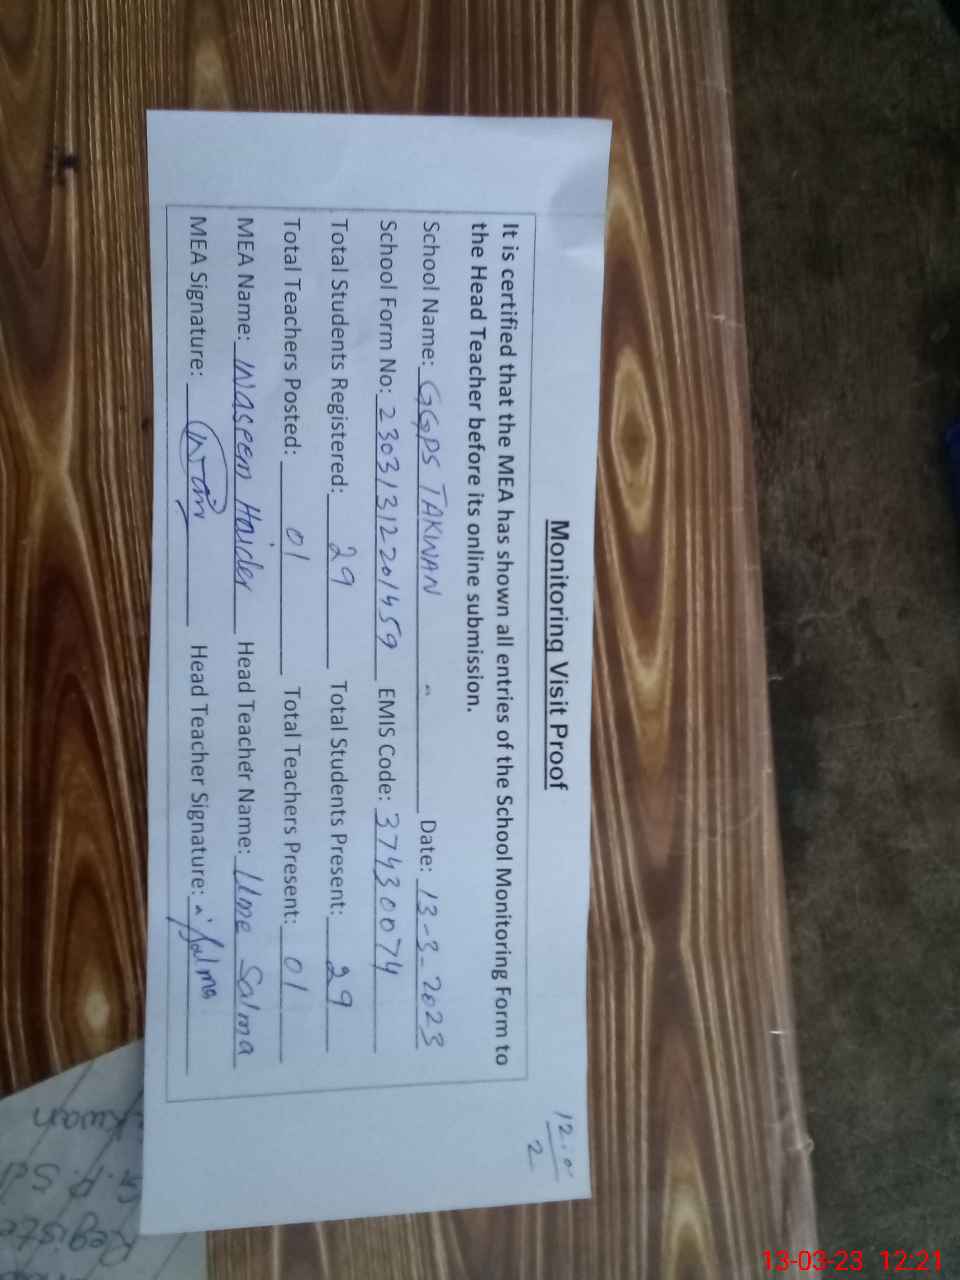 Monitoring Visit Proof
It is certified that the MEA has shown all entries of the School Monitoring Form to
the Head Teacher before its online submission.
School Name: GGPS TAKWAN Date: 13-3-2023
School Form No: 23031312201459 EMIS Code: 37430074
Total Students Registered: 29 Total Students Present: 29
Total Teachers Posted: 01 Total Teachers Present: 01
MEA Name: Waseem Haider Head Teacher Name: Ume Salma
MEA Signature: Head Teacher Signature: Salma
2
kwan
Registe
13-03-23 12:21